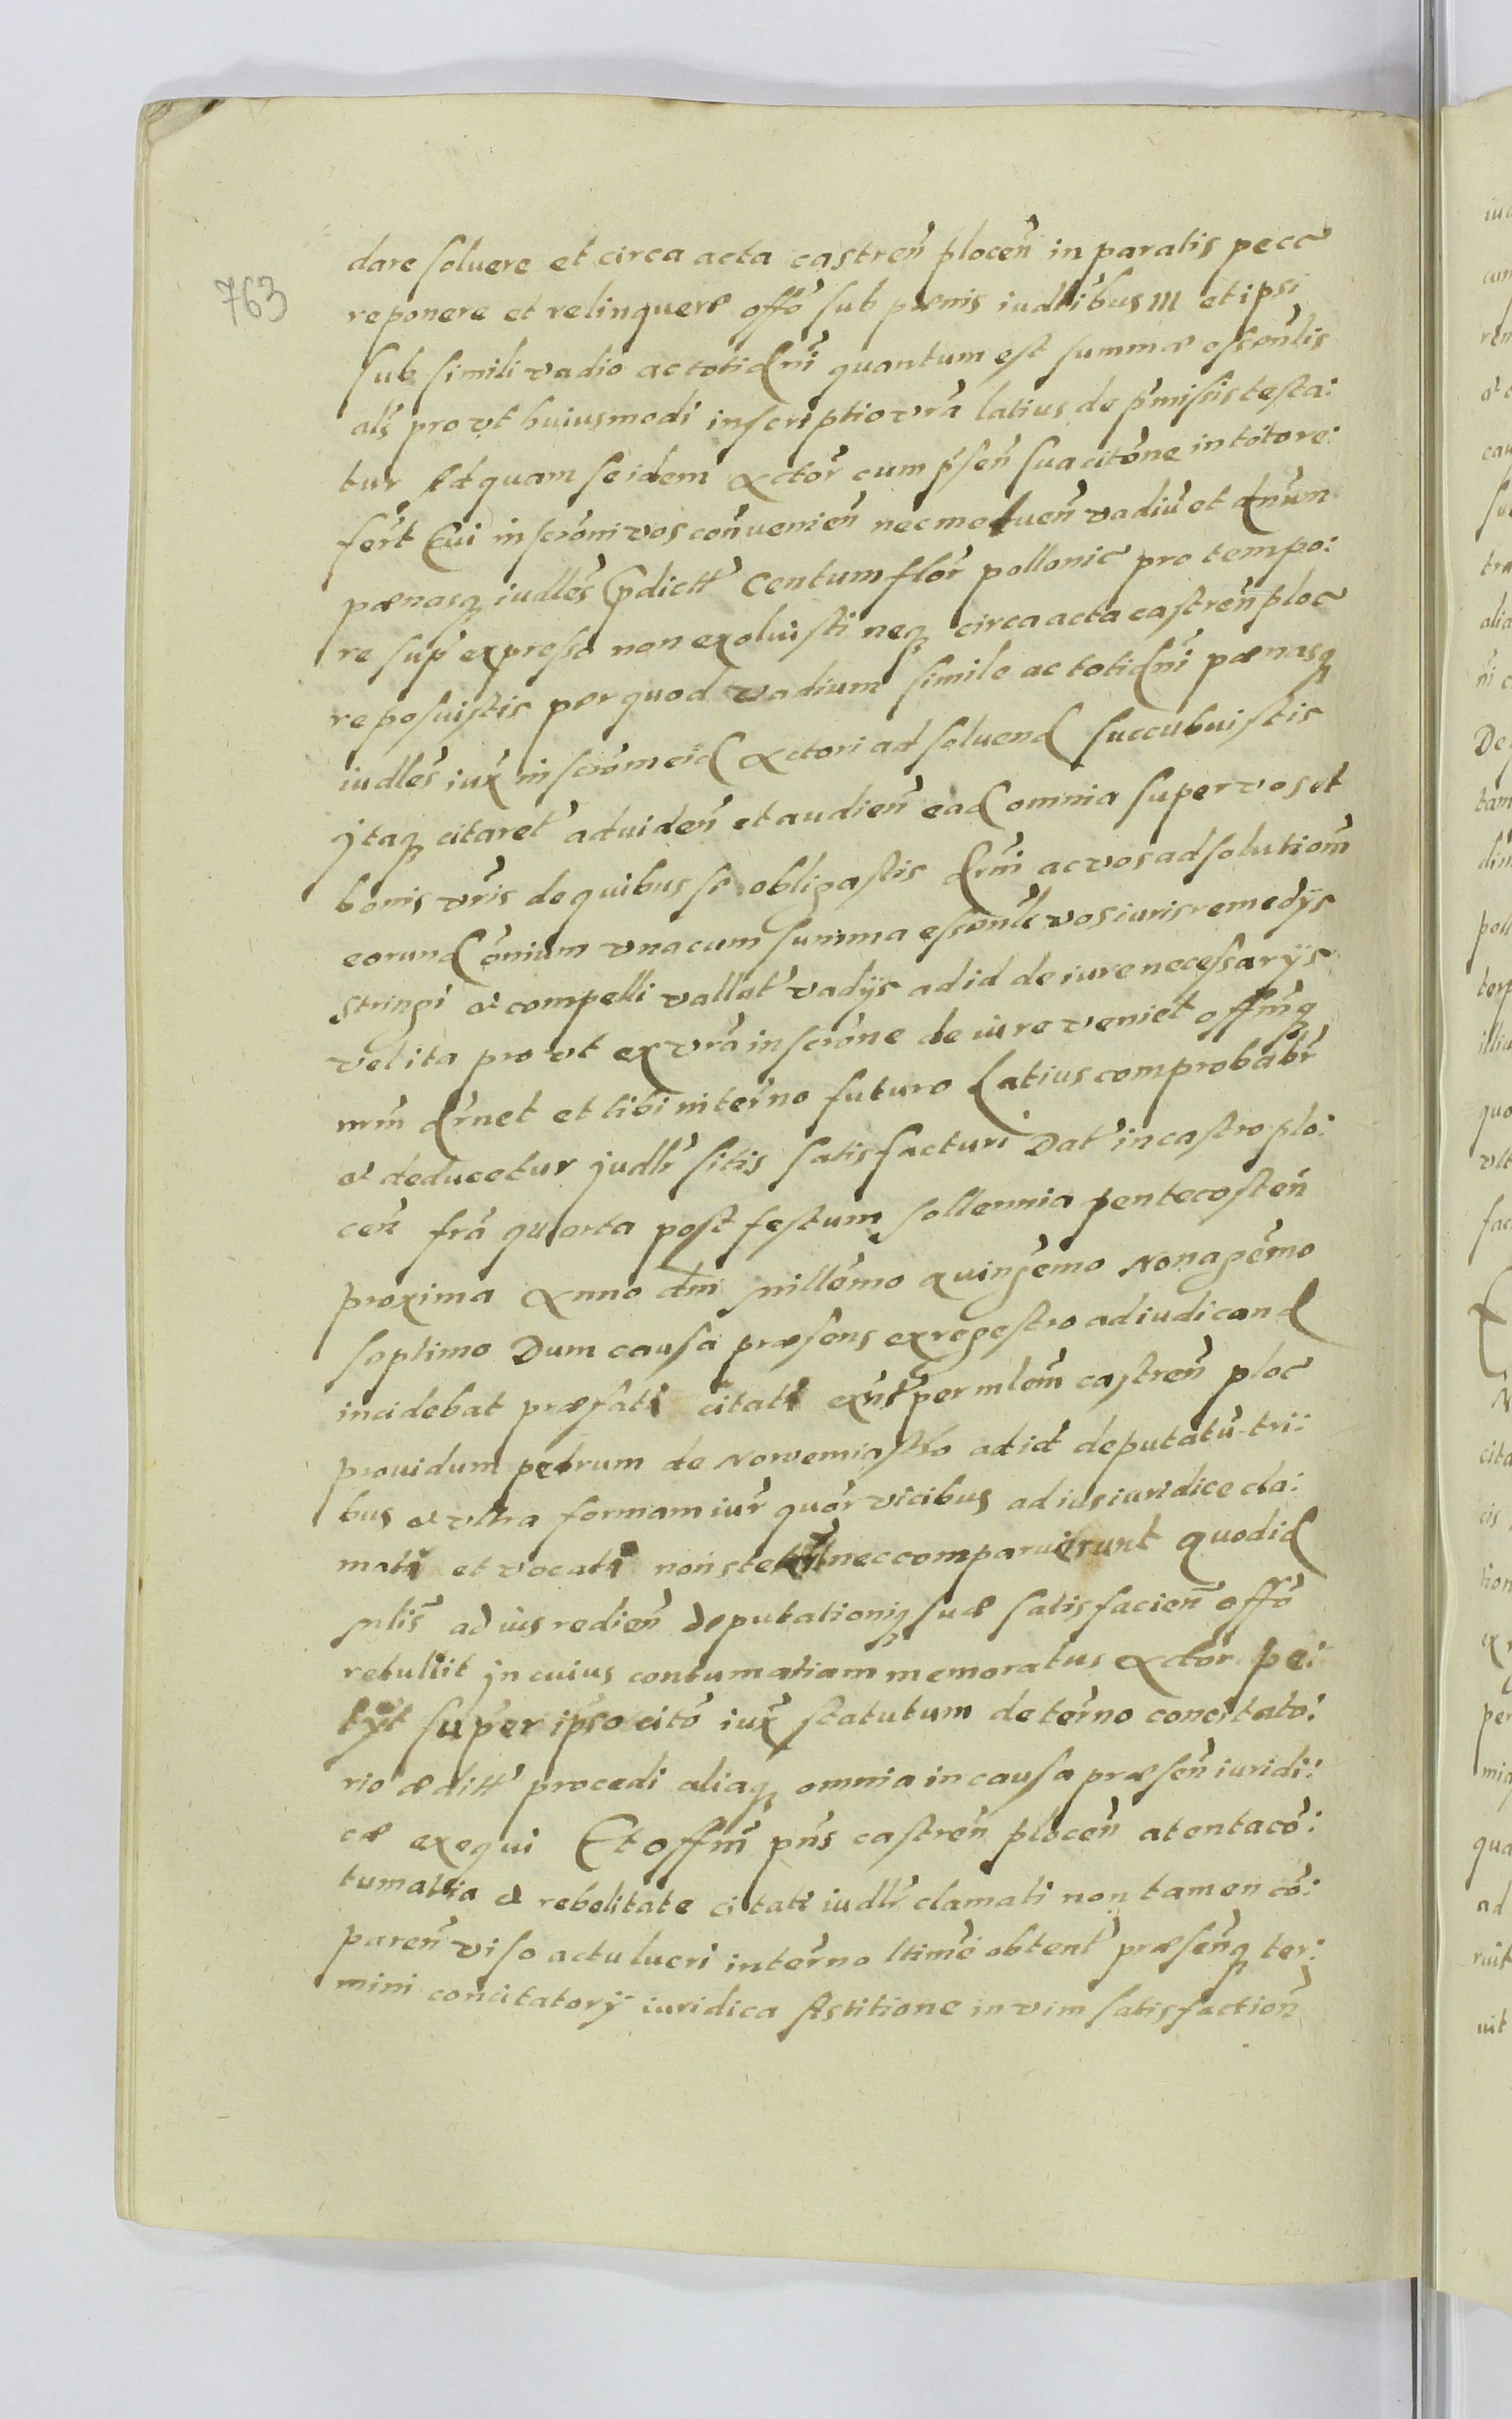 763
dare soluere et circa acta castren̄ plocen̄ in paratis pecc̄
reponere et relinquere offō sub pœnis iudlibus III et ipsi
sub simili vadio ac totid dn̄i quantum est summæ essen̄lis
als̄ pro vt huiusmodi inscriptio vrā latius de pr̄missis testa:
tur Ad quam se idem Actor̄ cum pr̄sen̄ sua citōne in toto re:
fert Cui inscrōni vos conuenien̄ nec metuen̄ vadiū et dānūm
pœnasq̨ iudlēs pdictt̄ Centum flor̄ pollonic̄ pro tempo:
re sup̄ expresso non exoluisti neq̨ circa acta castren̄ ploc̄
reposuistis per quod vadium simile ac totid dn̄i pœnasq̨
iudlēs iux̄ inscrōm eid Actori ad soluend succubuistis
jtaq̨ citaret̄ ad viden̄ et audien̄ ead omnia super vos et
bonis vrīs de quibus se obligastis ac vos ad solutiom̄
eorund ōnium vna cum summa essen̄li vos iuris remedÿs
stringi et compelli vallat̄ vadÿs ad id de iure necessarÿs
vel ita pro vt ex vrā inscrōne de iure veniet offm̄q̨
nrm̄ et tibi in ter̄no futuro Latius comprobabr̄
et deducetur judlr̄ sitis satisfacturi Dat̄ in castro plo:
cen̄ frā quarta post festum sollennia pentecosten̄
proxima Anno dn̄i millēmo quingēmo Nonagēmo
septimo Dum causa præsens ex regestro ad iudicand
incidebat præfati citati exn̄t per mlem̄ castren̄ ploc̄
prouidum petrum de Nowemiasto ad id deputatū tri:
bus et vltra formam iur̄ quor̄ vicibus ad ius iuridice cla:
mati et vocati non nec comparuerunt quod id
mlīs ad ius redien̄ deputationiq̨ suæ satisfacien̄ offō
retullit jn cuius contumatiam memoratus Actor pe:
tÿt super ipso citō iux̄ statutum de ter̄no concitato:
rio æditt̄ procedi aliaq̨ omnia in causa præsen̄ iuridi:
cæ exequi Et offm̄ pn̄s castren̄ plocen̄ atenta cō:
tumatia et rebelitate citati iudlr̄ clamati non tamen cō:
paren̄ viso actu lucri in ter̄no ltimē obtent̄ præsen̄q̨ ter:
mini concitatorÿ iuridica Astitione in vim satisfaction̄